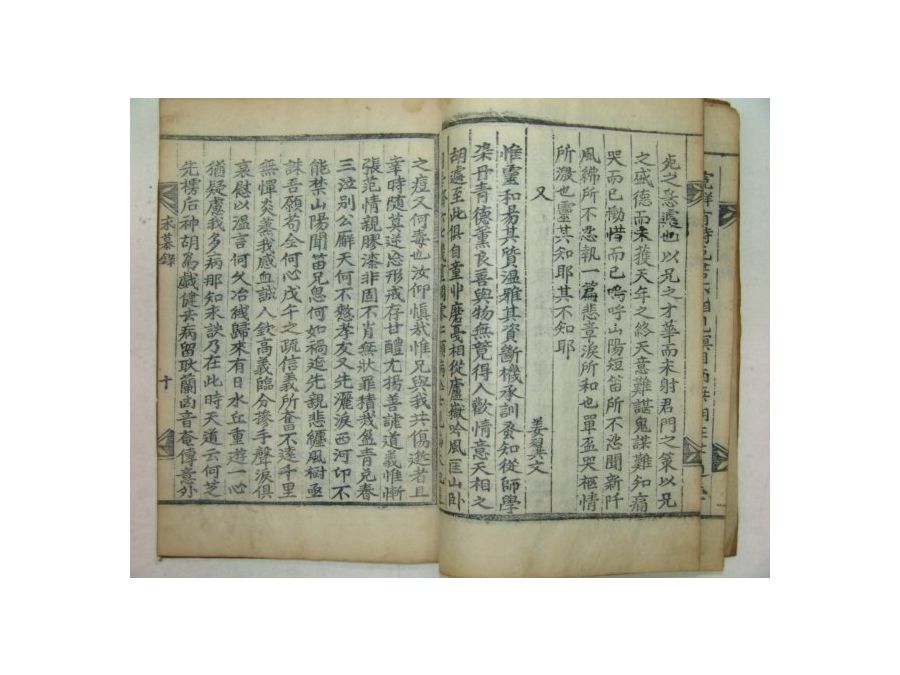 宛之悲遽也以兄之才華而未射君門之策以兄
之盛德而未獲天年之終天意難諶鬼謀難知痛
哭而已慟惜而已嗚呼山陽短笛所不忍聞新阡
風紼所不忍執一篇悲章淚所和也單盃哭柩情
所激也靈其知耶其不知耶
又
姜翼文
惟靈和易其質溫雅其資斷機承訓發知從師學
柒丹青德薰良善與物無競得人歡情意天相之
胡遽至此俱自童丱磨戞相從廬嶽吟風匡山臥
之痘又何毒也汝仰愼哉惟兄與我共傷逝者且
幸時隨莫逆忘形戒存甘醴尤揚善謔道義惟慚
張范情親膠漆非固不肖無狀罪積我盈青兒春
三泣別公廨天何不憖孝友又先灑淚西河卬不
能禁山陽聞笛兄忽何如禍造先親悲纏風樹亟
誄吾願苟全何心戊午之疏信義所奮不遠千里
無憚炎蒸我感血誠人欽高義臨分摻手聲淚俱
哀慰以溫言何久冶綫歸來有日水丘重遊一心
猶疑慮我多病那知永訣乃在此時天道云何芝
先櫄后神胡爲戲健去病留耿蘭凶音奄傳意外
永慕錄
十